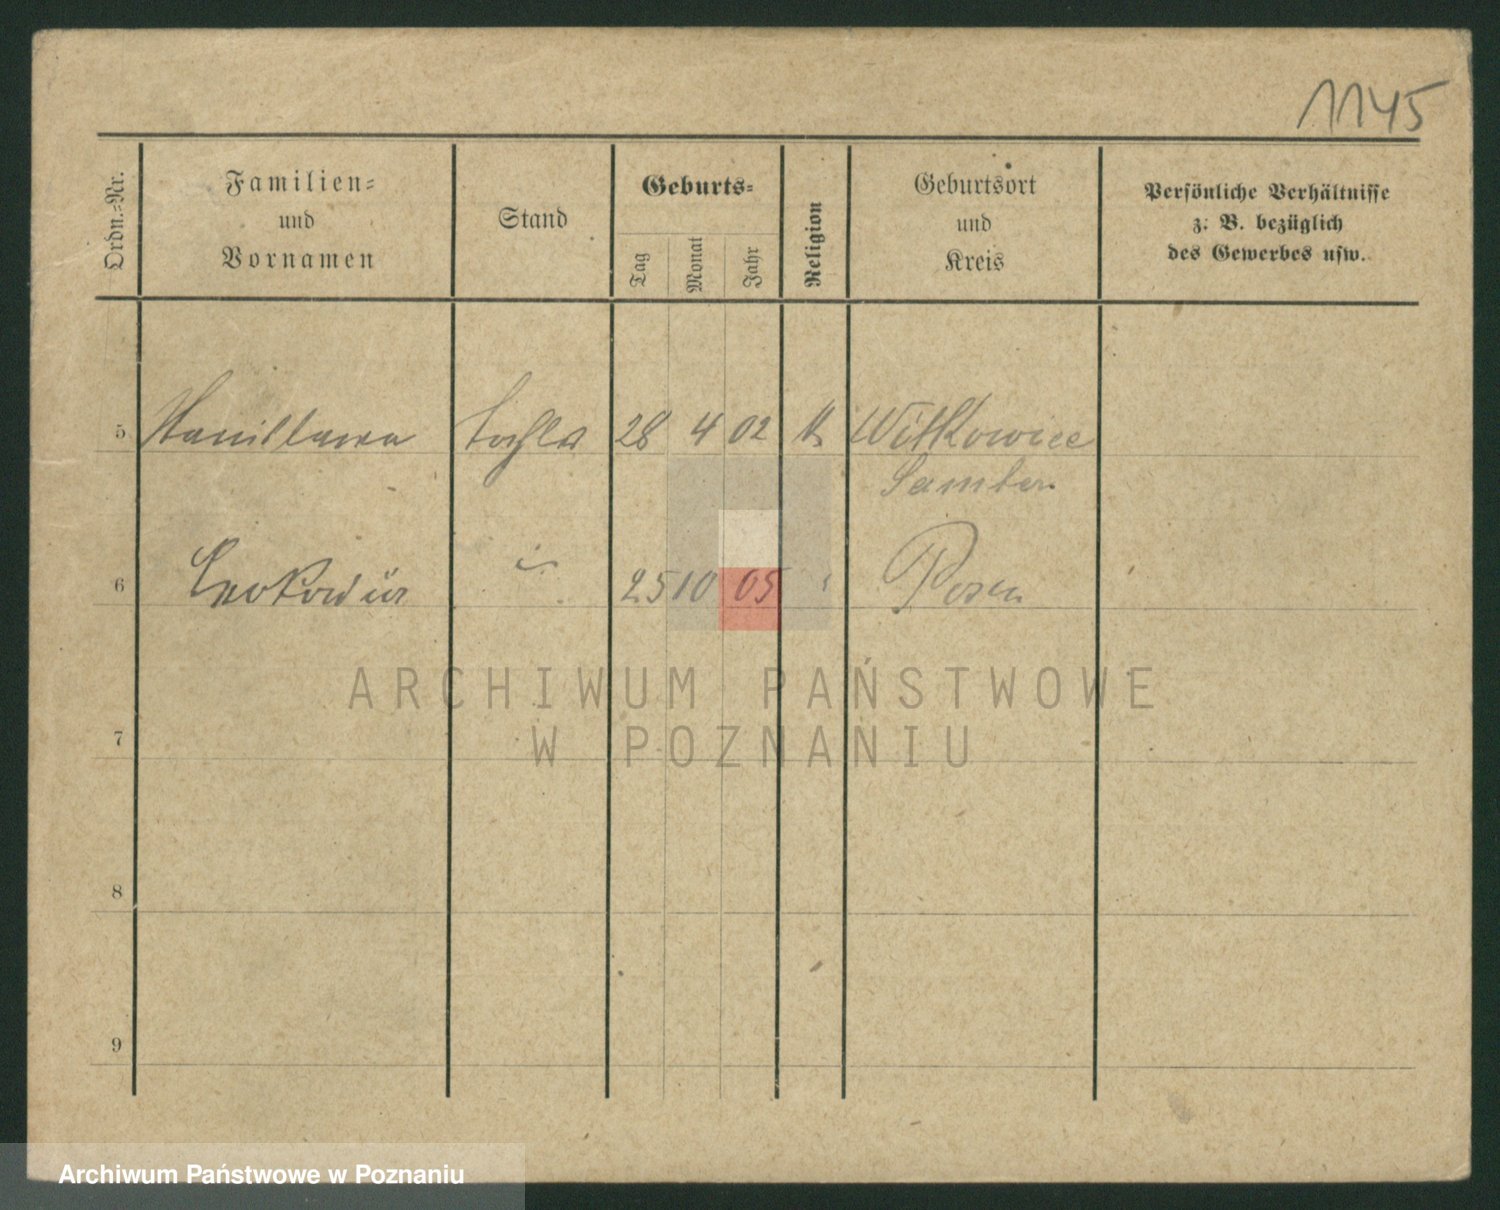 1145
Ordn.=Nr.
Familien=
und
Vornamen
Stand
Geburts=
Tag
Monat
Jahr
Religion
Geburtsort
und
Kreis
Persönliche Verhältnisse
z. B. bezüglich
des Gewerbes usw.
5 Stanislawa 28 4 02 k Witkowice
Samter
6 25 10 05 Posen
ARCHIWUM PAŃSTWOWE
W POZNANIU
7
8
9
Archiwum Państwowe w Poznaniu